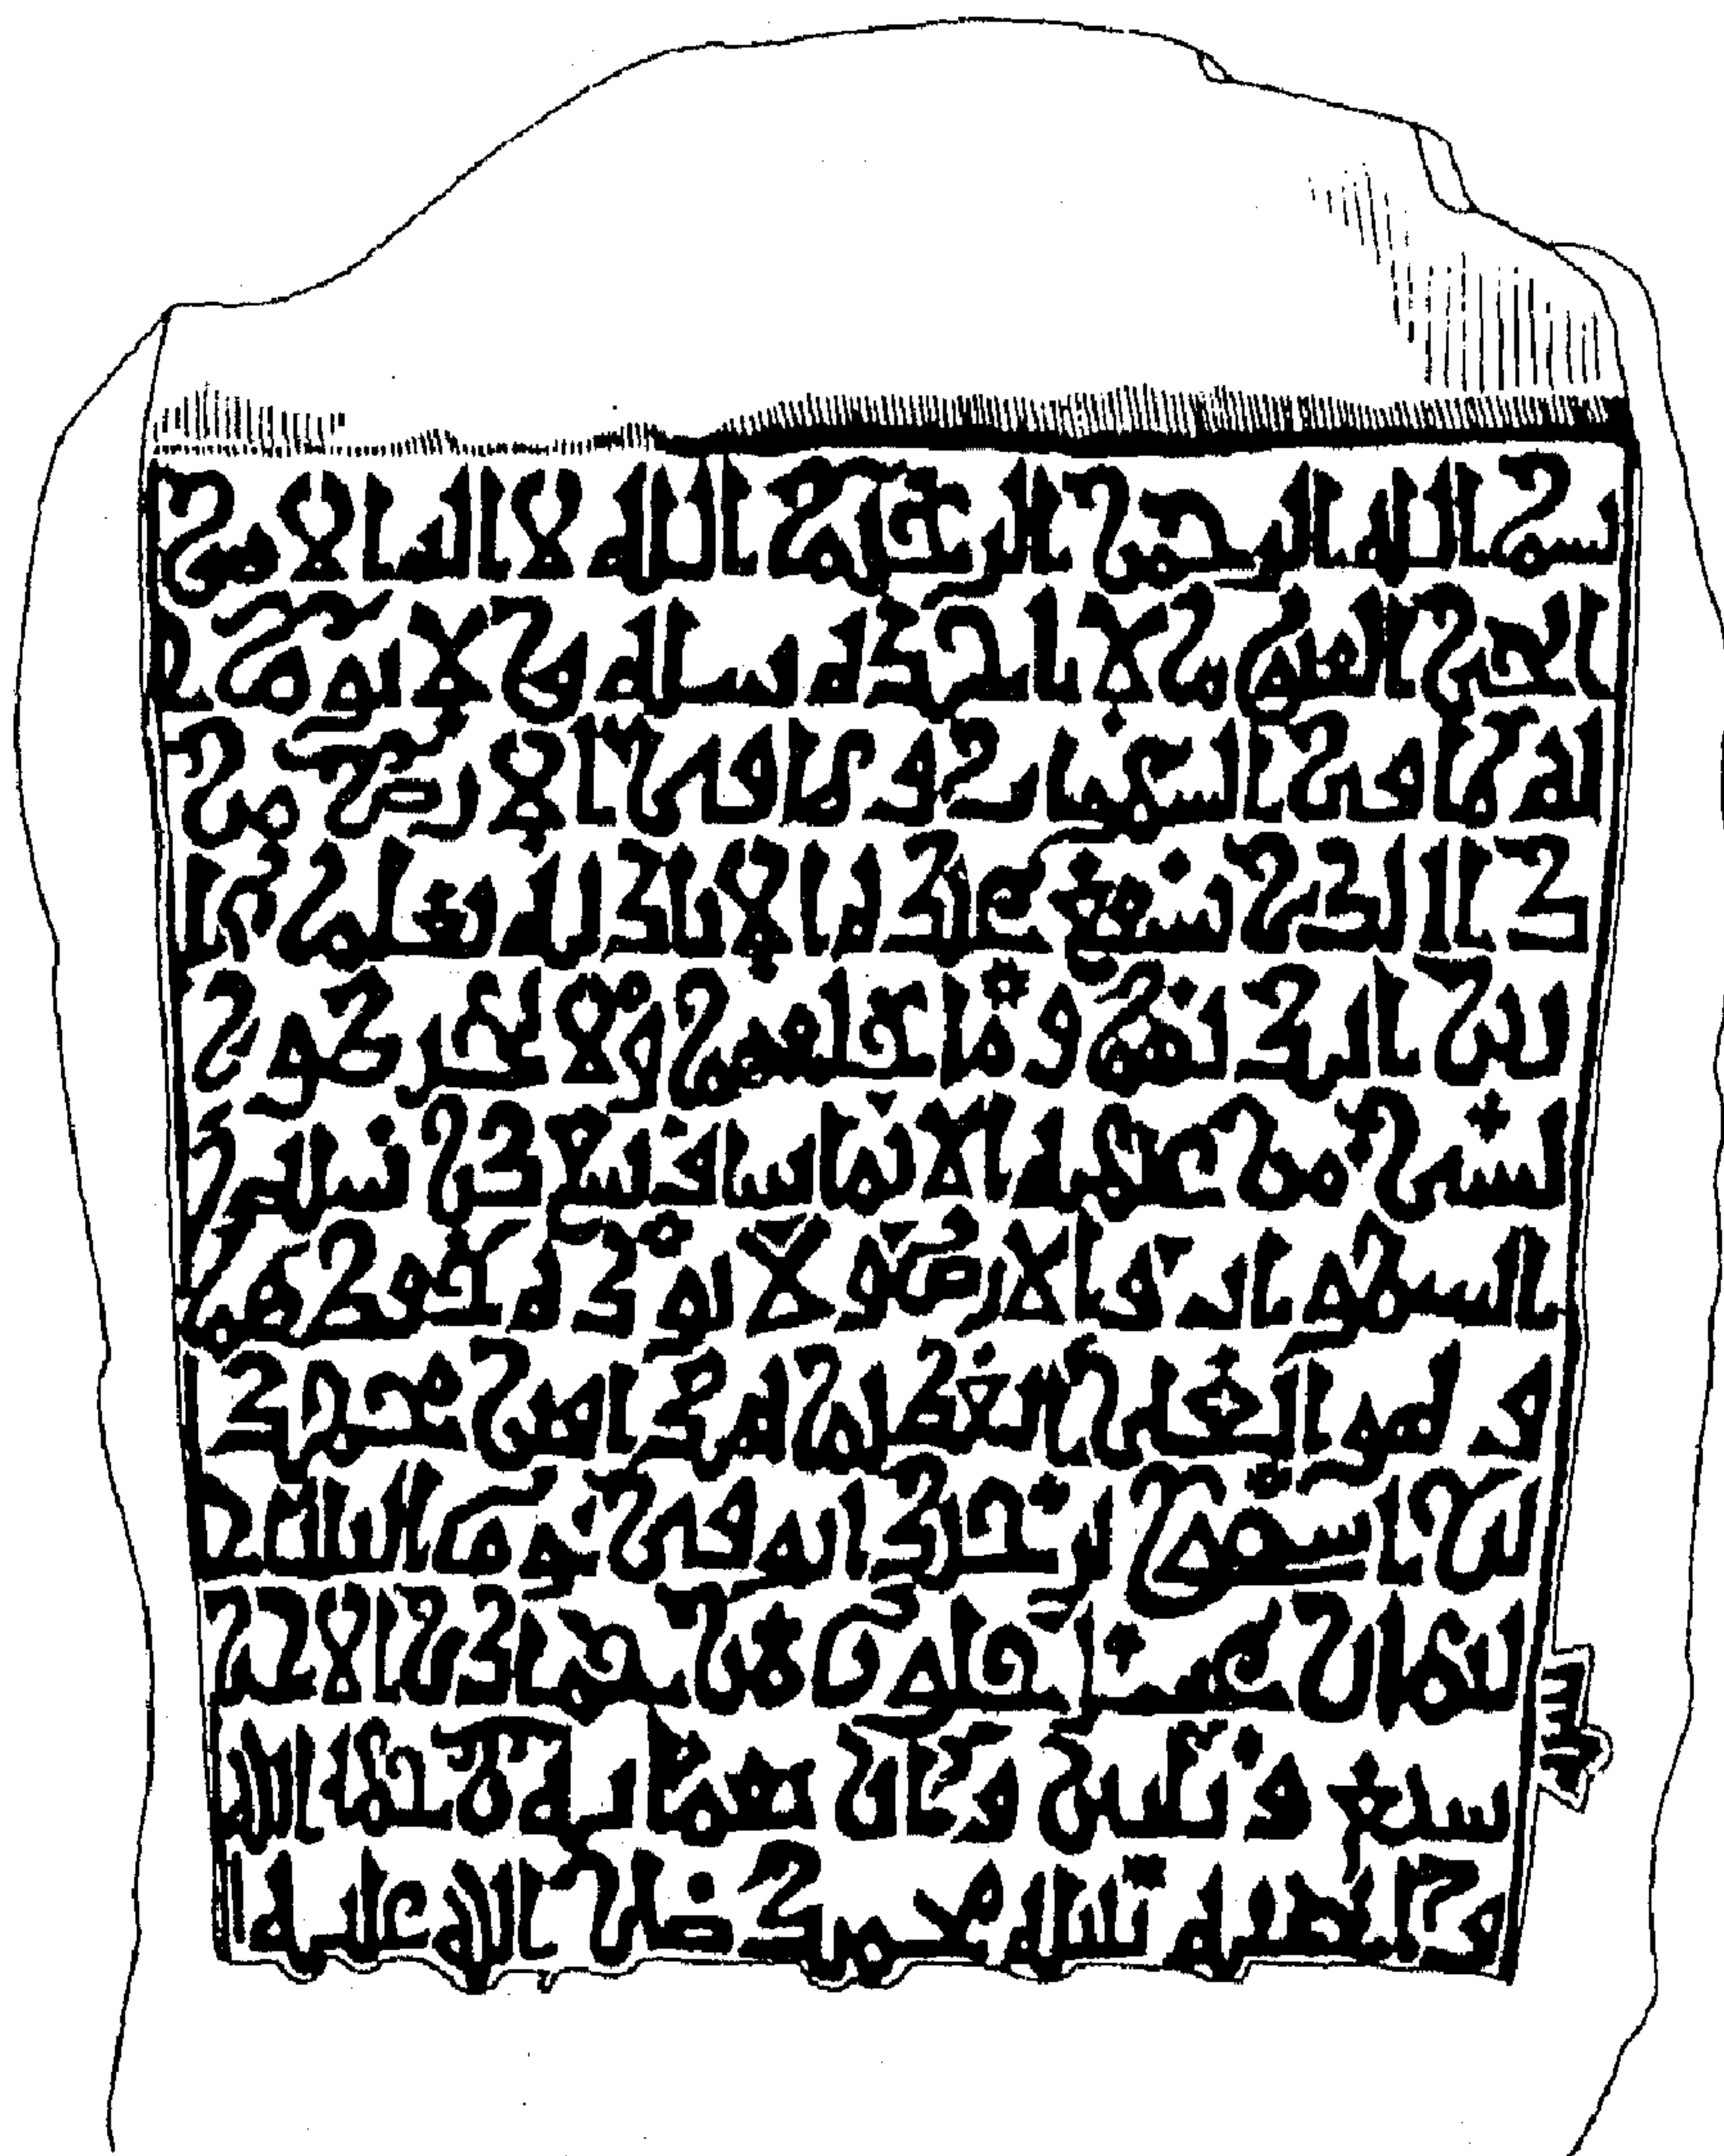 بسم الله الرحمن الرحيم الله لا اله الا هو
الحي القيوم لا تاخذه سنة ولا نوم
له ما في السموات وما في الارض من
ذا الذي يشفع عنده الا باذنه يعلم ما
بين ايديهم وما خلفهم ولا يحيطون
بشي من علمه الا بما شا وسع كرسيه
السموات والارض ولا يوده حفظهما
و هو العلي العظيم هذا محمد
بن اسحق توفي يوم
لثمان عشر خلون من جمادى الاخر
سبع وثلثين رحمة الله
نبيه محمد صلى الله عليه